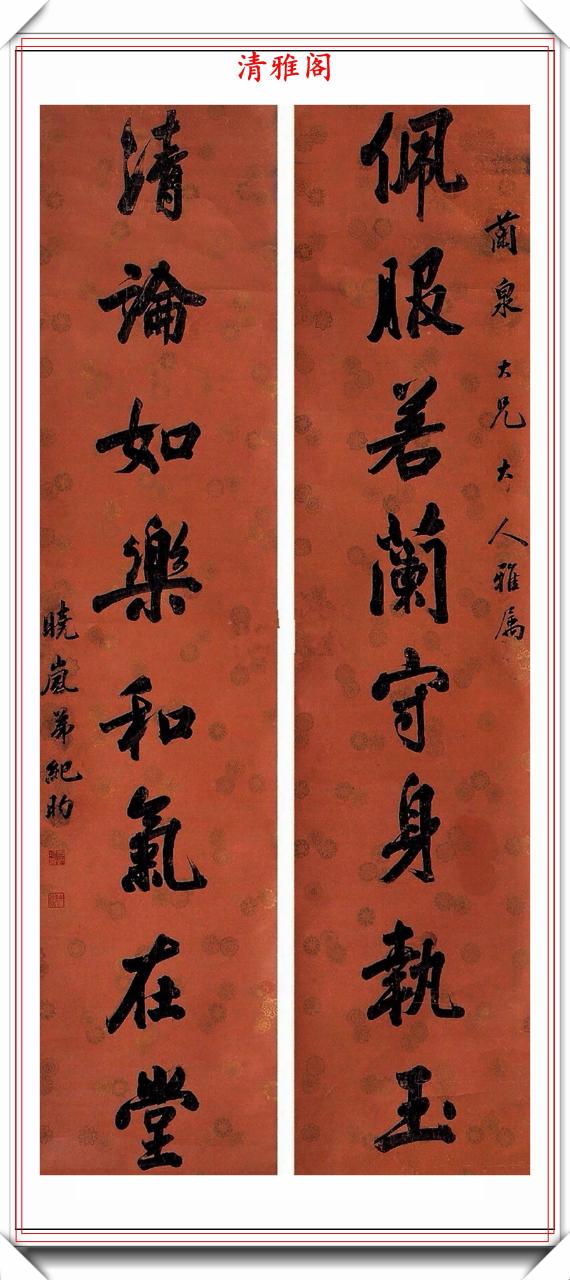 清雅阁
蘭泉大兄大人雅属
佩服若蘭守身執玉
清論如樂和氣在堂
曉嵐弟紀昀